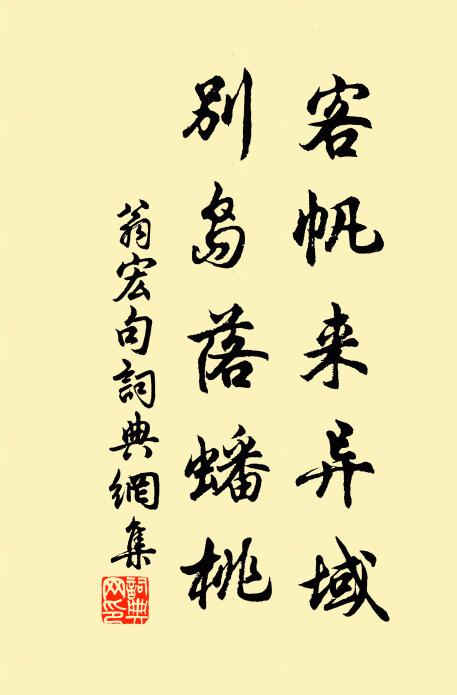 客帆来异域
别岛落蟠桃
翁宏句詞典網集
詞典网印